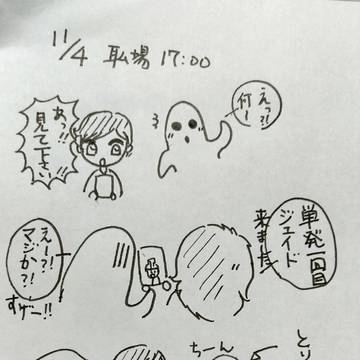 11/4 耺場 17:00
あっ!!
見て下さい
えっ?!
何ー
単発一回目
ジェイド
来ました
えー!?
マジか?!
すげー!!
ちーん